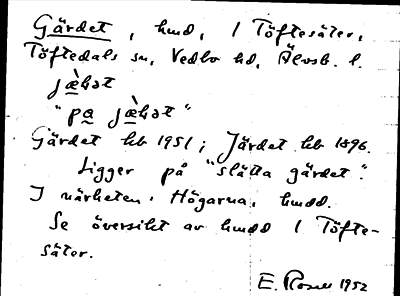 Gärdet, hmd, 1 Töftesäter,
Töftedals sn, Vedbo hd, Älvsb. l.
jæ̀ḷət
"pa jæ̀ḷət"
Gärdet hb 1951; Järdet hb 1896.
Ligger på "slätta gärdet".
I närheten: Högarna, hmdd.
Se översikt av hmdd 1 Töfte-
säter.
E. Rosell 1952